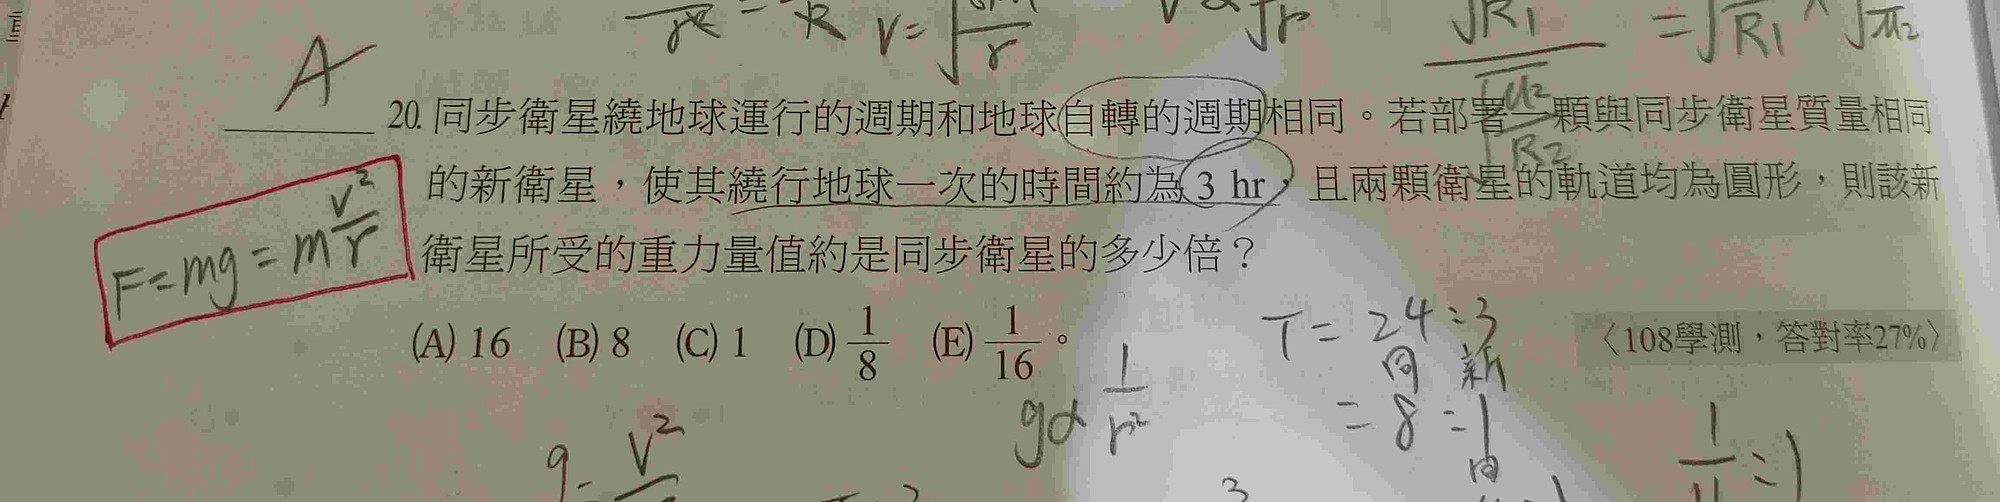 V=
A
20. 同步衛星繞地球運行的週期和地球自轉的週期相同。若部署一顆與同步衛星質量相同
的新衛星，使其繞行地球一次的時間約為3 hr，且兩顆衛星的軌道均為圓形，則該新
衛星所受的重力量值約是同步衛星的多少倍？
F=mg=m v²/r
(A) 16 (B) 8 (C) 1 (D) 1/8 (E) 1/16。
〈108學測，答對率27%〉
T = 24:3
同 新
= 8:1
g∝ 1/r²